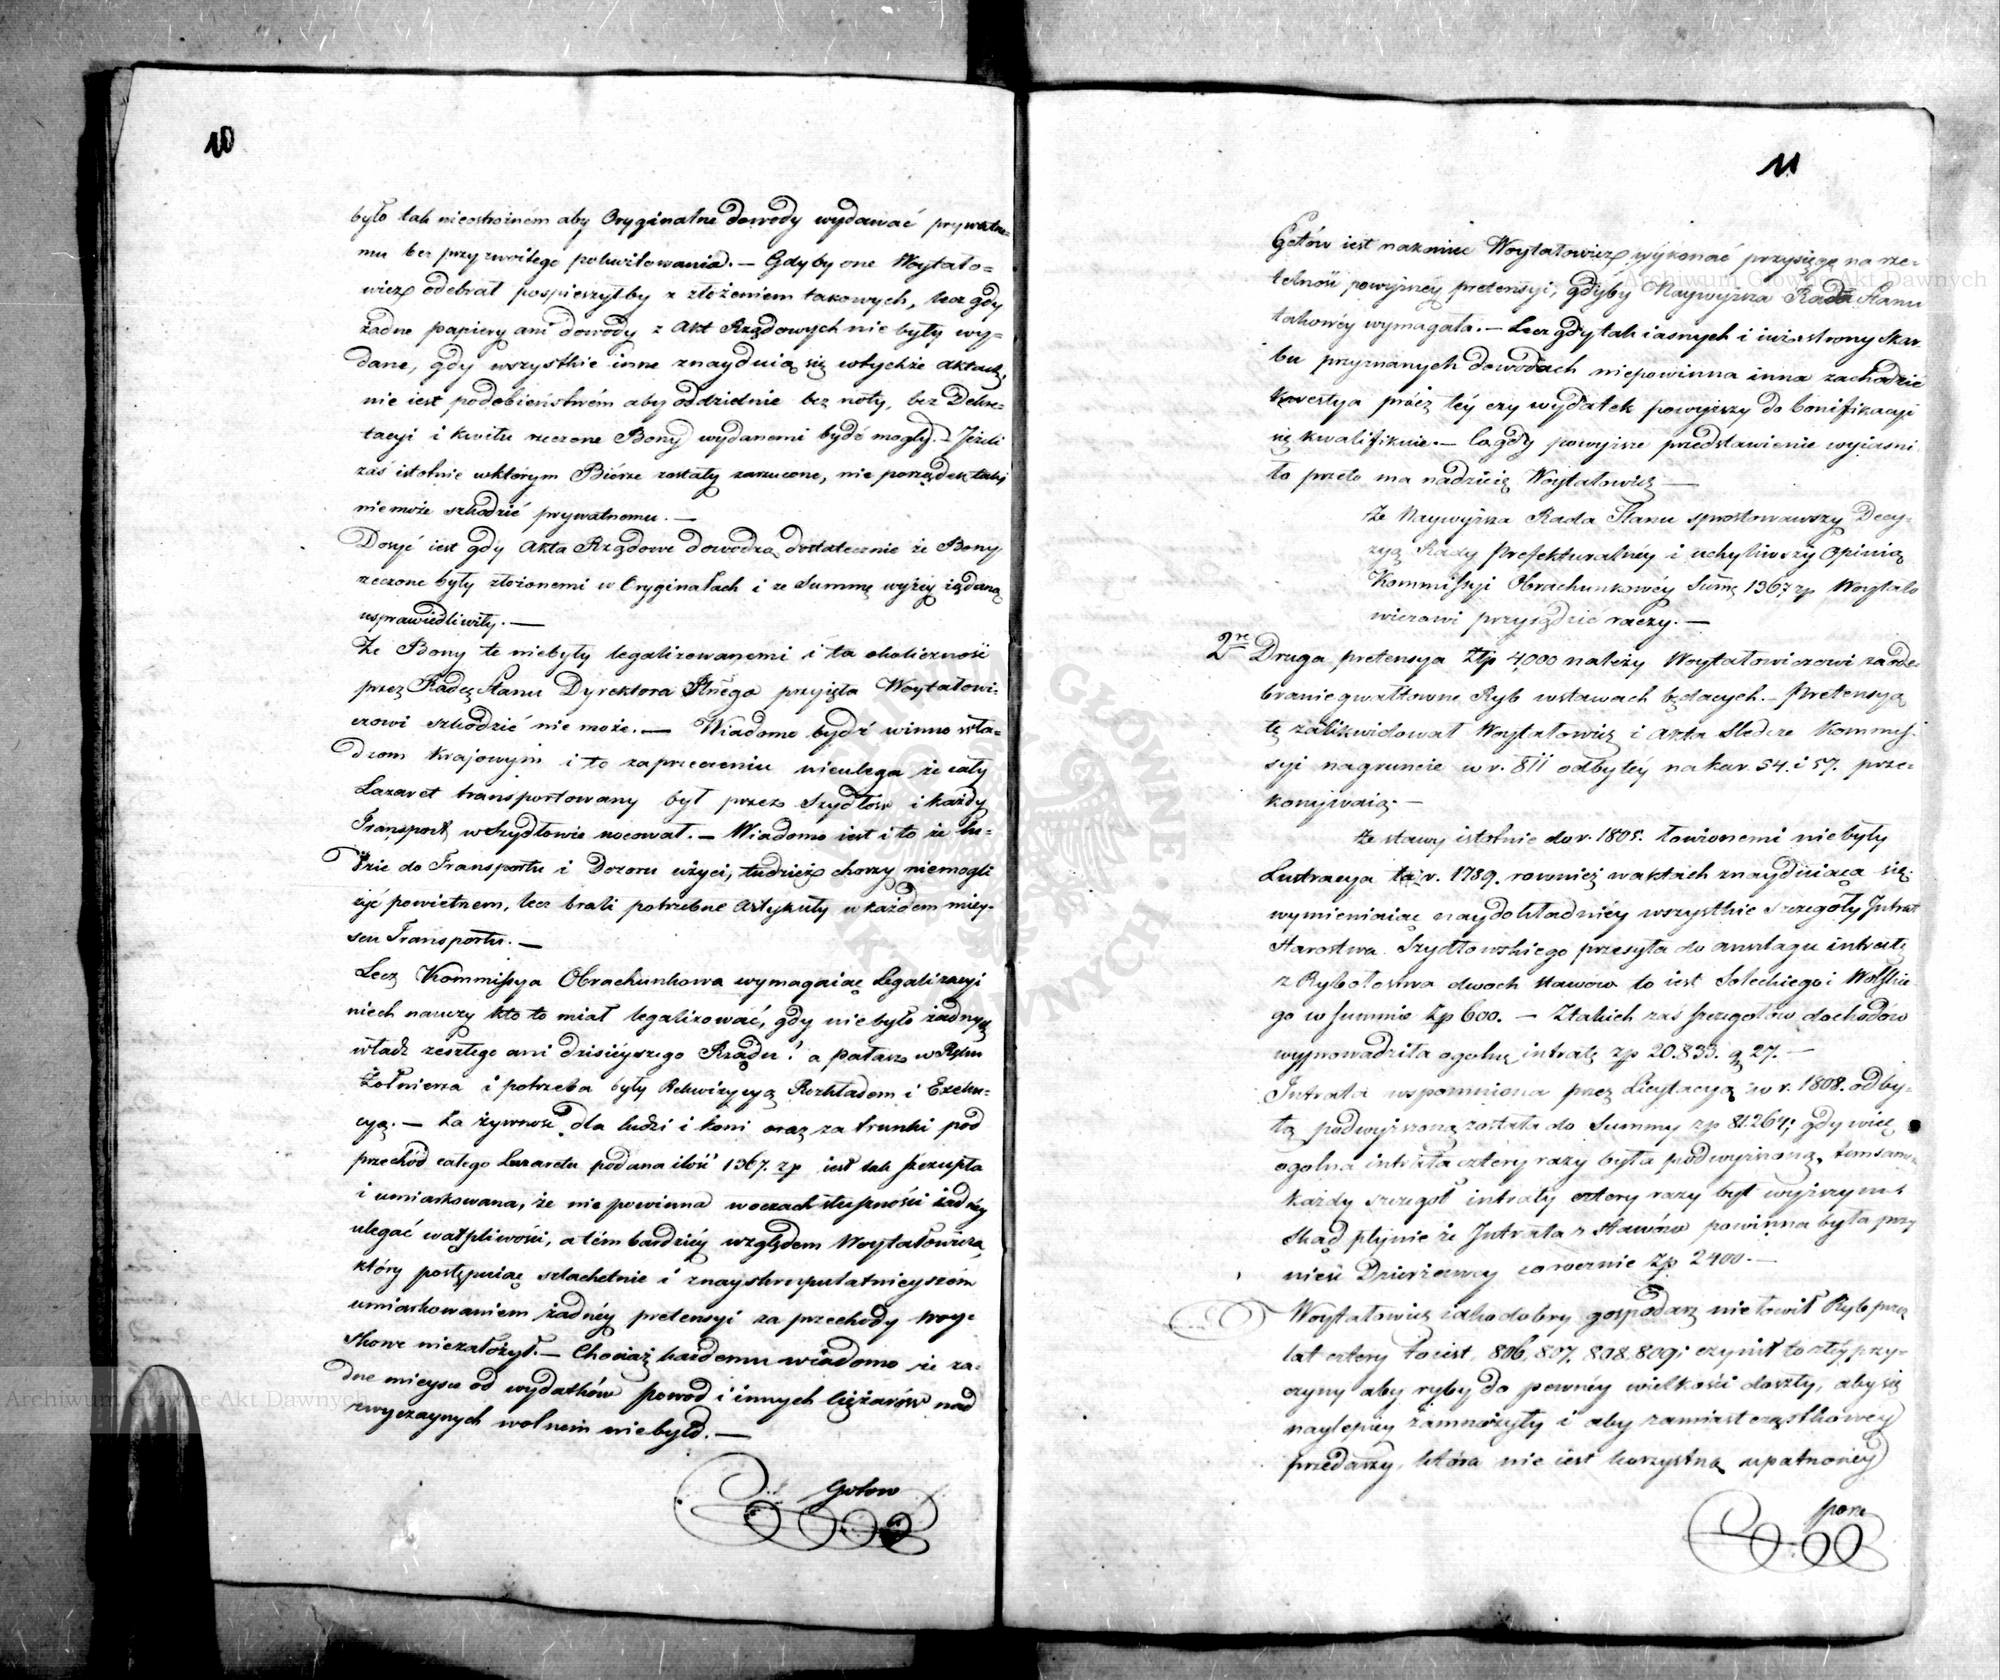 10
było tak nieostrożném aby Oryginalne dowody wydawać prywatne=
mu bez przyzwoitego pokwitowania. — Gdyby one Woytało=
wicz odebrał pospieszyłby z złożeniem takowych, lecz gdy
żadne papiery ani dowody z Akt Rządowych nie były wy=
dane, gdy wszystkie inne znayduią się w tychże aktach,
nie iest podobieństwém aby oddzielnie bez noty, bez Dekre=
tacyi i kwitu rzeczone Bony wydanemi bydź mogły. — Jeżeli
zaś istotnie w którym Biórze zostały zarzucone, nie porządek taki
niemoże szkodzić prywatnemu. —
Dosyć iest gdy Akta Rządowe dowodzą dostatecznie że Bony
rzeczone były złożonemi w Oryginałach i że Summę wyżéy żądaną
usprawiedliwiły. —
Że Bony te niebyły legalizowanemi i ta okoliczność
przez Radcę Stanu Dyrektora przyięta Woytałowi=
czowi szkodzić nie może. — Wiadomo bydź winno wła=
dzom Krajowym i to zaprzeczeniu nieulega że cały
Lazaret transportowany był przez Szydłów i każdy
Transport w Szydłowie nocował. — Wiadomo iest i to że lu=
dzie do Transportu i Dozoru użyci, tudzież chorzy niemogli
żyć powietrzem, lecz brali potrzebne Artykuły w każdem miey=
scu Transportu. —
Lecz Kommissya Obrachunkowa wymagaiąc Legalizacyi
niech nauczy kto to miał legalizować, gdy nie było żadnych
władz zeszłego ani dzisiéyszego Rządu! a pałasz w Ręku
Żołnierza i potrzeba były Rekwizycyą Rozkładem i Exeku=
cyą. — Za żywność dla ludzi i koni oraz za trunki pod
przechód całego Lazaretu podana ilość 1367. zp iest tak szczupła
i umiarkowana, że nie powinna w oczach słuszności żadnéy
ulegać wątpliwości, a tém bardziéy względem Woytałowicza,
który postępuiąc szlachetnie i z nayskrupulatnieyszém
umiarkowaniem żadnéy pretensyi za przechody woy=
skowe niezałożył. — Chociaż każdemu wiadomo że ża=
dne mieysce od wydatków powod i innych ciężarów nad
zwyczaynych wolnem niebyło. —
Gotow
11
Gotów iest nakoniec Woytałowicz wykonać przysięgę na rze=
telność powyższéy pretensyi, gdyby Naywyższa Rada Stanu
takowéy wymagała. — Lecz gdy tak iasnych i iuż ze strony Skar
bu przyznanych dowodach niepowinna inna zachodzić
kwestya prócz téy czy wydatek powyższy do bonifikacyi
się kwalifikuie. — Co gdy powyższe przedstawienie wyiaśni
ło przeto ma nadzieię Woytałowicz —
że Naywyższa Rada Stanu sprostowawszy Decy=
zyą Rady Prefekturalnéy i uchyliwszy Opinią
Kommissyi Obrachunkowéy Summę 1367 zp Woytało
wiczowi przysądzić raczy. —
2re Druga pretensya Złp 4,000 należy Woytałowiczowi za ode=
branie gwałtowne Ryb w stawach będących. — Pretensyą
tę zalikwidował Woytałowicz i Akta Śledcze Kommis=
syi na gruncie w r. 811 odbytéy na kar. 54. i 57. prze=
konywaią. —
że stawy istotnie do r. 1805. łowionemi nie były
Lustracya r. 1789. rownież w aktach znayduiąca się
wymieniaiąc naydokładniéy wszystkie szczegóły Intrat
Starostwa Szydłowskiego przesyła do anszlagu intratę
z Rybołostwa dwoch stawow to iest Soleckiego i Wolskie
go w summie Zp 600. — Z takich zaś szczegołów dochodów
wyprowadziła ogolną intratę zp 20.833. g 27. —
Intrata wspomniona przez Licytacyą w r. 1808. odby=
tą podwyższoną została do Summy zp 81264; gdy więc
ogolna intrata cztery razy była podwyższoną, temsamem
każdy szczegoł intraty cztery razy był wyższym
skąd płynie że Intrata z Stawów powinna była przy
nieść Dzierżawcy corocznie Zp 2400. —
Woytałowicz iako dobry gospodarz nie łowił Ryb przez
lat cztery to iest, 806, 807, 808, 809; czynił to z téy przy=
czyny aby ryby do pewnéy wielkości doszły, aby się
naylepiéy zamnożyły i aby zamiast cząstkowéy
przedaży, która nie iest korzystną upatrzonéy
pory